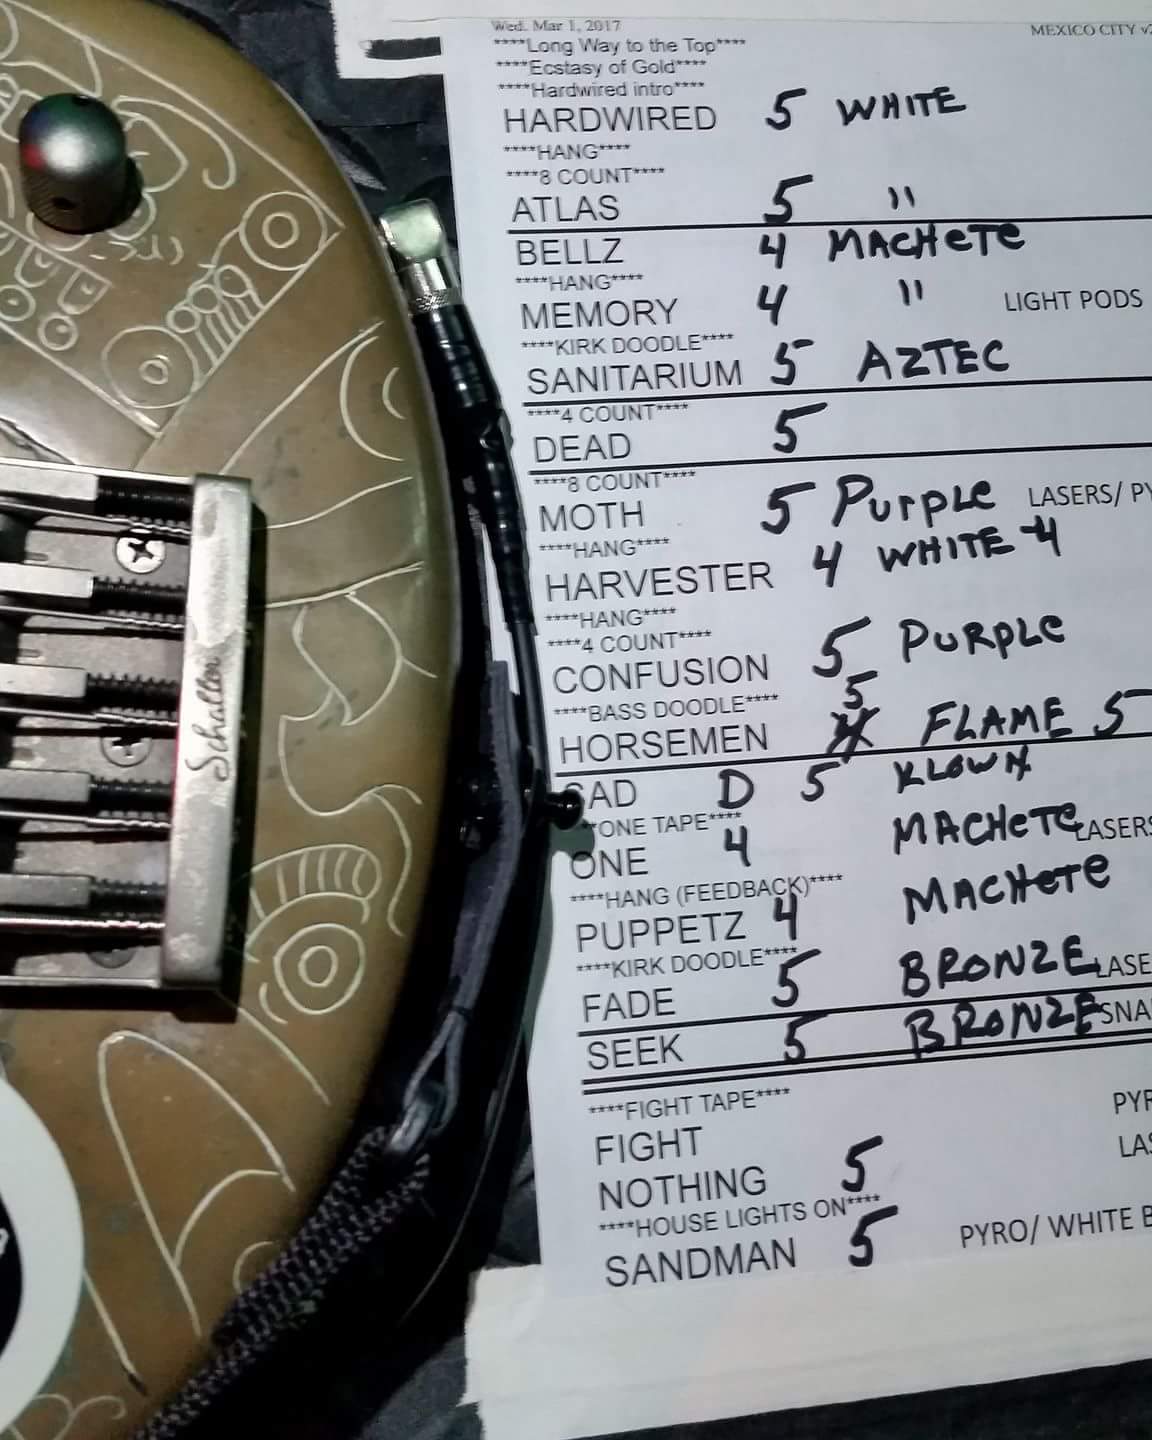 Wed. Mar 1, 2017 MEXICO CITY
****Long Way to the Top****
****Ecstasy of Gold****
****Hardwired intro****
HARDWIRED 5 WHITE
****HANG****
****8 COUNT****
ATLAS 5 "
BELLZ 4 MACHETE
****HANG****
MEMORY 4 " LIGHT PODS
****KIRK DOODLE****
SANITARIUM 5 AZTEC
****4 COUNT****
DEAD 5
****8 COUNT****
MOTH 5 PURPLE LASERS/ PY
****HANG****
HARVESTER 4 WHITE 4
****HANG****
****4 COUNT****
CONFUSION 5 PURPLE
****BASS DOODLE**** 5
HORSEMEN FLAME 5
SAD D 5 KLOWN
**ONE TAPE****
ONE 4 MACHETE LASERS
****HANG (FEEDBACK)****
PUPPETZ 4 MACHETE
****KIRK DOODLE****
FADE 5 BRONZE LASE
SEEK 5 BRONZE SNA
****FIGHT TAPE****
FIGHT PYR
NOTHING 5 LAS
****HOUSE LIGHTS ON****
SANDMAN 5 PYRO/ WHITE B
Schaller